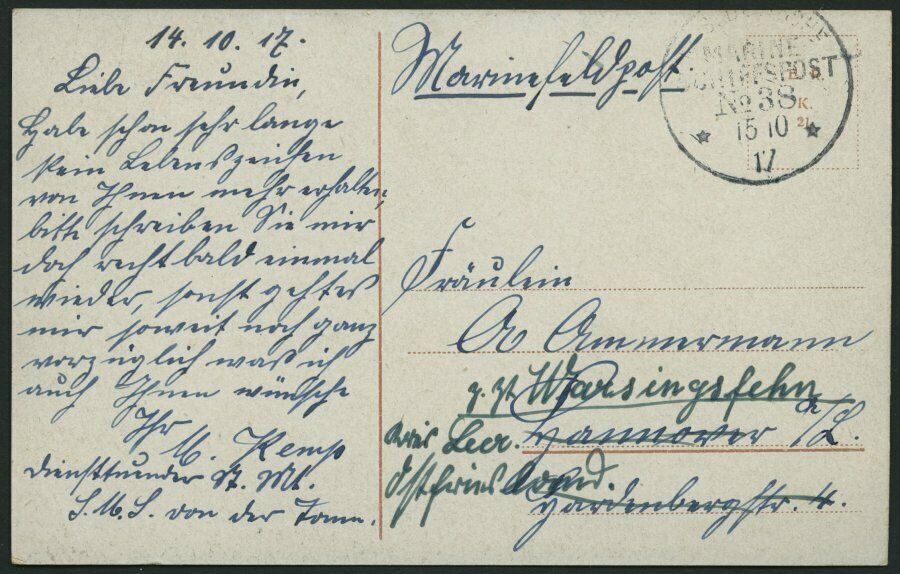 14.10.17.
Liebe Freundin,
Habe schon sehr lange
kein Lebenszeichen
von Ihnen mehr erhalten,
bitte schreiben Sie mir
doch recht bald einmal
wieder, sonst geht es
mir soweit noch ganz
vorzüglich was ich
auch Ihnen wünsche
Ihr
Kemp
diensttuender
S.M.S. von der Tann.
Marinefeldpost.
MARINE
SCHIFFSPOST
No 38
15 10
17
K.
21
Fräulein
A Ammermann
z. Zt Warsingsfehn
Kreis Leer. Hannover
Ostfriesland.
Hardenbergstr. 4.